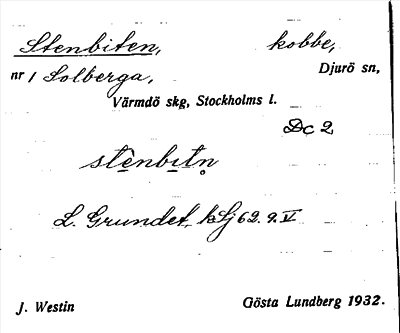 Stenbiten, kobbe,
nr 1 Solberga, Djurö sn,
Värmdö skg, Stockholms l.
Dc 2
stènbıtn̥
L. Grundet,
J. Westin Gösta Lundberg 1932.